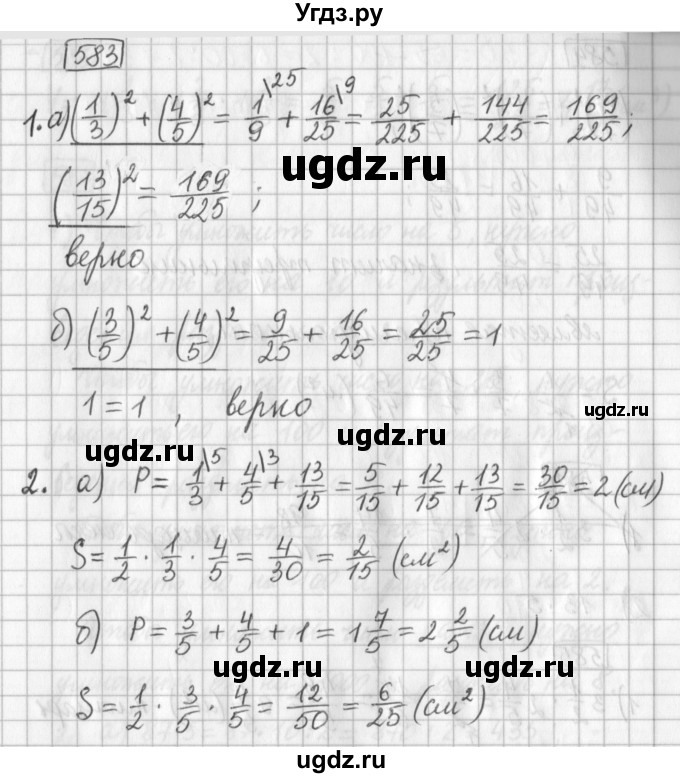 Угдз.ру
583
1. а) (1/3)² + (4/5)² = 1/9 \25 + 16/25 \9 = 25/225 + 144/225 = 169/225 ;
ugdz.ru
(13/15)² = 169/225 ;
ugdz.ru
верно
б) (3/5)² + (4/5)² = 9/25 + 16/25 = 25/25 = 1
1 = 1 , верно
ugdz.ru
ugdz.ru
ugdz.ru
2. а) P = 1/3 \5 + 4/5 \3 + 13/15 = 5/15 + 12/15 + 13/15 = 30/15 = 2 (см)
S = 1/2 · 1/3 · 4/5 = 4/30 = 2/15 (см²)
б) P = 3/5 + 4/5 + 1 = 1 7/5 = 2 2/5 (см)
ugdz.ru
ugdz.ru
S = 1/2 · 3/5 · 4/5 = 12/50 = 6/25 (см²)
ugdz.ru